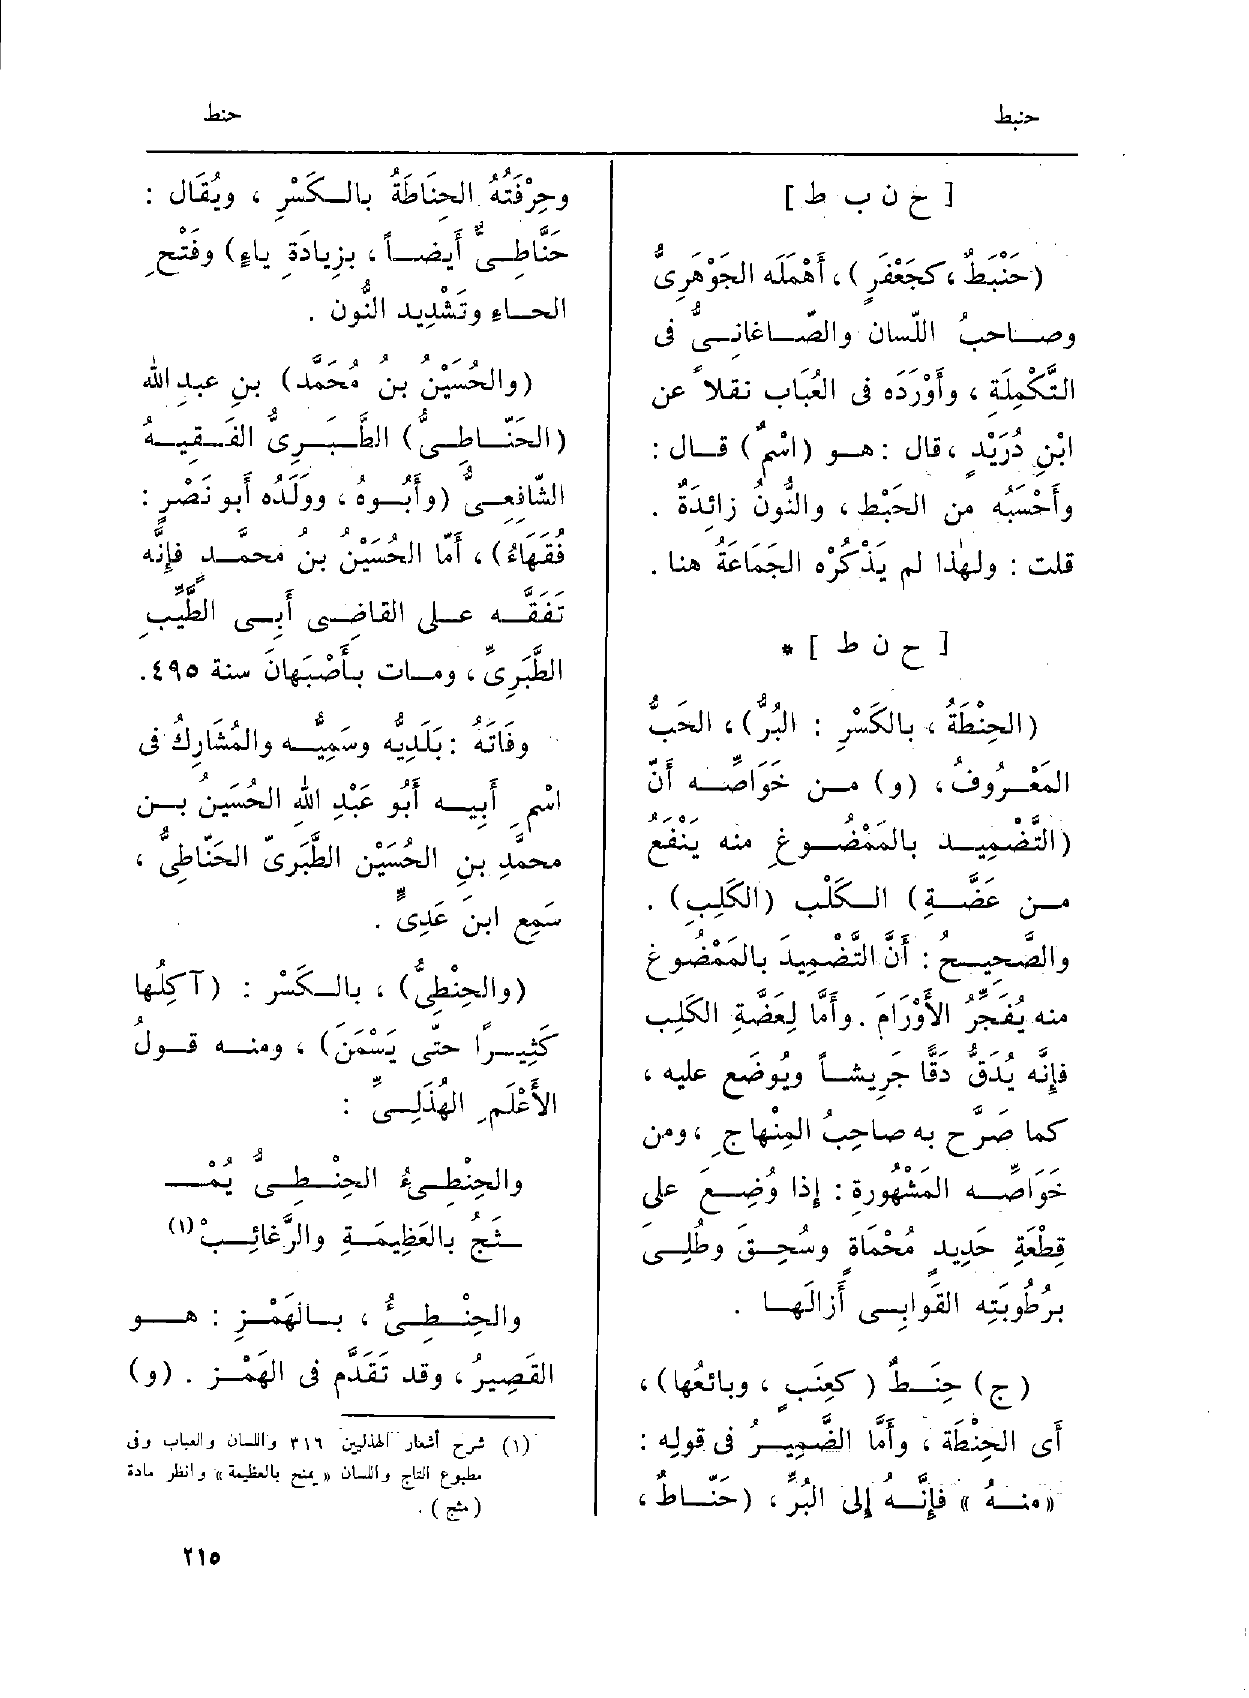 حنبط
حنط
[ ح ن ب ط ]
(حَنْبَطٌ، كجَعْفَرٍ)، أَهْمَلَه الجَوْهَرِىُّ
وصاحبُ اللّسان والصّاغانىُّ فى
التَّكْمِلَة، وأَوْرَدَه فى العُبَاب نَقْلاً عن
ابْنِ دُرَيْدٍ، قال : هو (اسْمٌ) قال :
وأَحْسَبُه من الحَبْط، والنُّونُ زائدَةٌ .
قلت : ولهٰذا لم يَذْكُرْه الجَمَاعَةُ هنا .
[ ح ن ط ] *
(الحِنْطَةُ، بالكَسْرِ : البُرُّ)، الحَبُّ
المَعْرُوفُ، (و) من خَوَاصِّه أَنَّ
(التَّضْمِيد بالمَمْضُوغِ منه يَنْفَع
من عَضَّةِ) الكَلْبِ (الكَلِبِ) .
والصَّحِيحُ : أَنَّ التَّضْمِيدَ بالمَمْضُوغِ
منه يُفَجِّرُ الأَوْرَامَ . وأَمَّا لِعَضَّةِ الكَلِبِ
فإِنَّه يُدَقُّ دَقًّا جَرِيشاً ويُوضَع عليه ،
كما صَرَّح به صاحِبُ المِنْهاجِ ، ومن
خَوَاصِّه المَشْهُورة : إِذا وُضِعَ على
قِطْعَةِ حَدِيدٍ مُحْماةٍ وسُحِقَ وطُلِىَ
بِرُطُوبَتِه القَوابِى أَزالَها .
(ج) حِنَطٌ (كعِنَبٍ ، وبائعُها)،
أَى الحِنْطَة، وأَمَّا الضَّمِيرُ فى قوله :
«منهُ» فإِنَّهُ إلى البُرِّ، (حَنّاطٌ،
وحِرْفَتُهُ الحِنَاطَةُ بالكَسْرِ ، ويُقَال :
حَنَّاطِىٌّ أَيضاً ، بزِيادَةِ ياءٍ) وفَتْحِ
الحاءِ وتَشْدِيد النُّون .
(والحُسَيْنُ بنُ مُحَمَّد) بنِ عبد الله
(الحَنّاطِىُّ) الطَّبَرِىُّ الفَقِيهُ
الشّافعِىُّ (وأَبُوهُ ، ووَلَدُه أَبو نَصْرٍ :
فُقَهَاءُ)، أَمّا الحُسَيْنُ بن محمَّد فإِنَّه
تَفَقَّه على القاضِى أَبِى الطَّيِّبِ
الطَّبَرِىِّ، ومات بأَصْبَهانَ سنة ٤٩٥.
وفاتَهُ : بَلَدِيُّه وسَمِيُّه والمُشَارِكُ فى
اسْمِ أَبِيه أَبُو عَبْدِ اللهِ الحُسَيْنُ بن
محمَّدِ بنِ الحُسَيْن الطَّبَرِىّ الحَنّاطِىُّ ،
سَمِع ابنَ عَدِىٍّ .
(والحِنْطِىُّ) ، بالكَسْر : (آكِلُها
كَثِيرًا حتّى يَسْمَنَ) ، ومنه قولُ
الأَعْلَمِ الهُذَلِىِّ :
والحِنْطِىءُ الحِنْطِىُّ يُمْـ
ـثَجُ بالعَظِيمَةِ والرَّغائِبْ(١)
والحِنْطِىءُ ، بالهَمْزِ : هو
القَصِيرُ، وقد تَقَدَّم فى الهَمْز . (و)
(١) شرح أشعار الهذليين ٣١٦ واللسان والعباب وفى
مطبوع التاج واللسان «يمنح بالعظيمة» وانظر مادة
(مثج) .
٢١٥